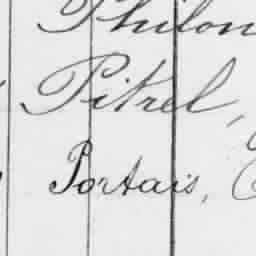 Philon
Pitrel,
Portais,